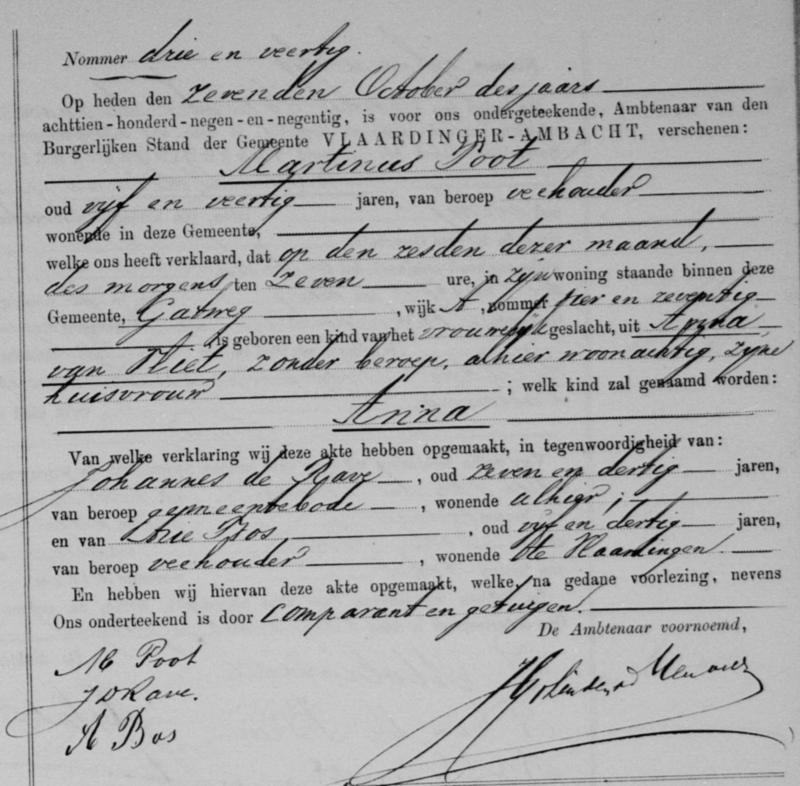 Nommer drie en veertig.
Op heden den zevenden October des jaars
achttien-honderd-negen-en-negentig, is voor ons ondergeteekende, Ambtenaar van den
Burgerlijken Stand der Gemeente VLAARDINGER-AMBACHT, verschenen:
Martinus Poot
oud vijf en veertig jaren, van beroep veehouder
wonende in deze Gemeente,
welke ons heeft verklaard, dat op den zesden dezer maand,
des morgens ten zeven ure, in zijn woning staande binnen deze
Gemeente, Gatweg, wijk A, nommer vier en zeventig
is geboren een kind van het vrouwelijk geslacht, uit Anna
van Vliet, zonder beroep, alhier woonachtig, zijne
huisvrouw ; welk kind zal genaamd worden:
Anna
Van welke verklaring wij deze akte hebben opgemaakt, in tegenwoordigheid van:
Johannes de Rave, oud zeven en dertig jaren,
van beroep gemeentebode, wonende alhier,
en van Arie Bos, oud vijf en dertig jaren,
van beroep veehouder, wonende te Vlaardingen.
En hebben wij hiervan deze akte opgemaakt, welke, na gedane voorlezing, nevens
Ons onderteekend is door Comparant en getuigen.
De Ambtenaar voornoemd,
M Poot
J D Rave.
A Bos